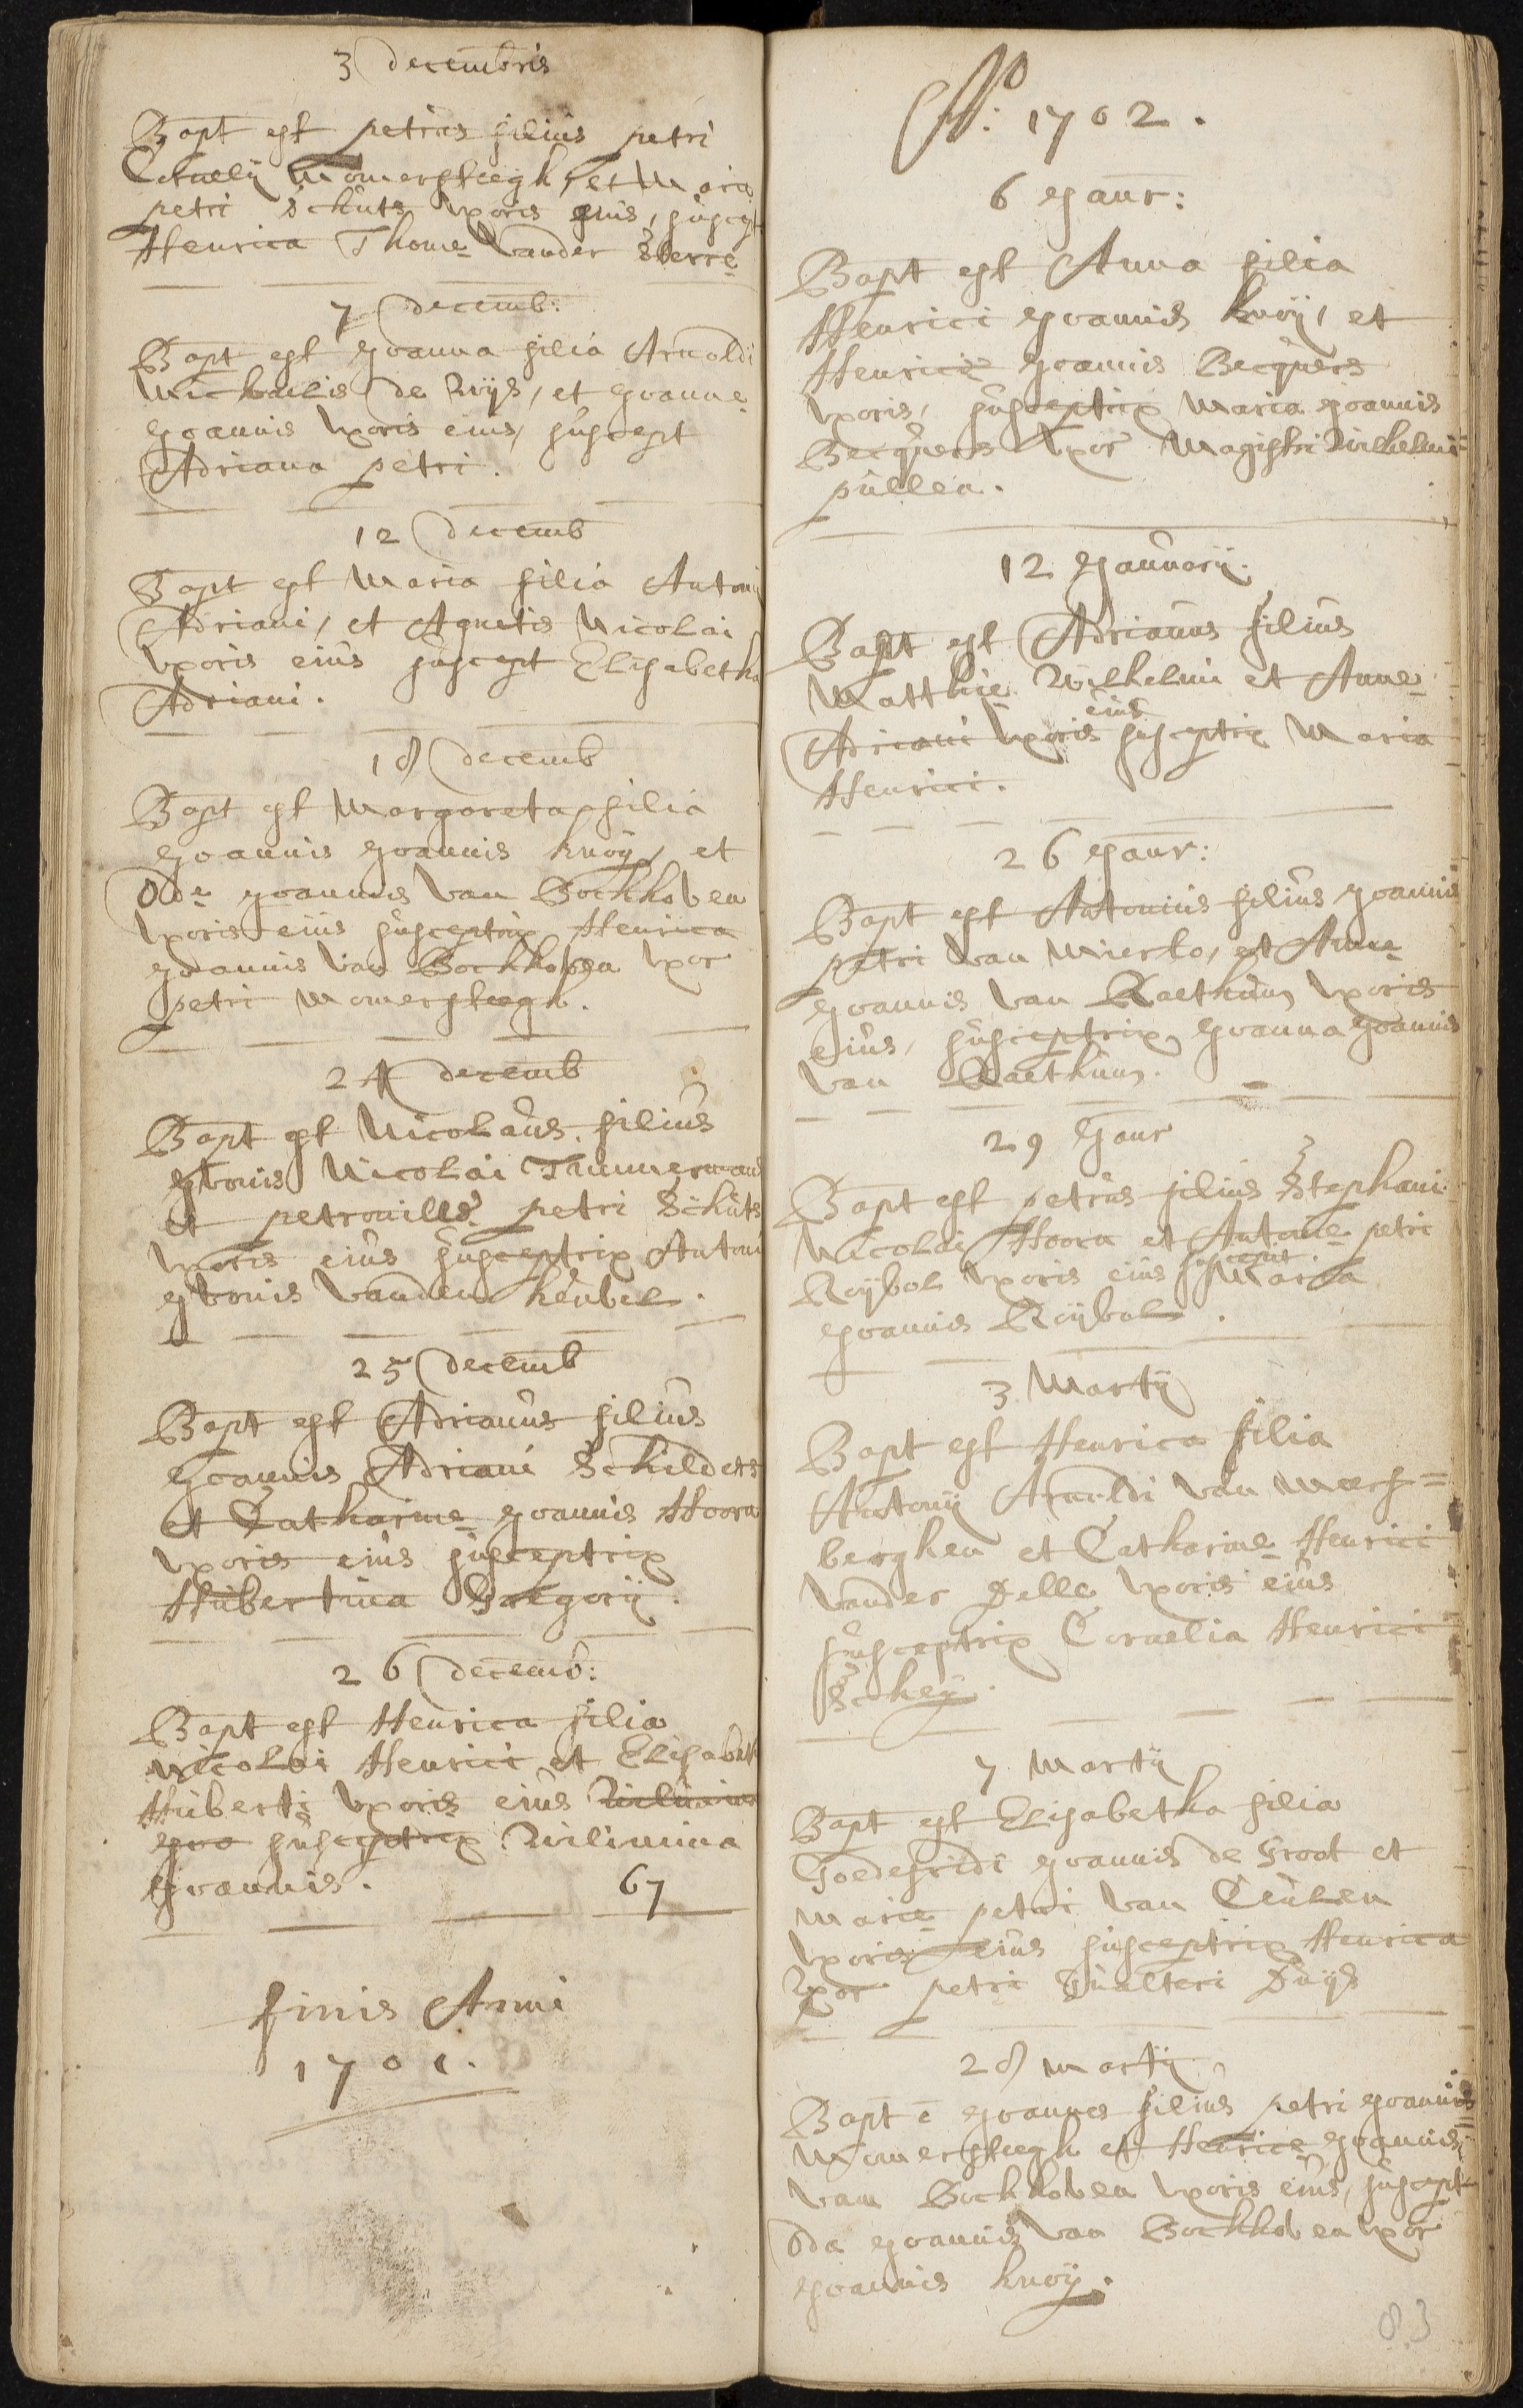 3 decembris
Bapt est petrus filius petri
Cornely Womersteegh, et Maria
petri Schuts uxoris eius, suscept
Henrica Thome vander Sterre
7 decemb:
Bapt est Joanna filia Arnoldi
Michaelis de Wijs, et Joanne
Joannis uxoris eius, suscept
Adriana petri.
12 decemb
Bapt est Maria filia Antoni
Adriani, et Agnetis Nicolai
uxoris eius suscept Elisabetha
Adriani.
18 decemb
Bapt est Margareta filia
Joannis Joannis knoij, et
Ode Joannis van Bockhoven
uxoris eius susceptrix Henrica
Joannis van Bockhoven uxor
petri Womersteegh.
24 decemb
Bapt est Nicolaus filius
Jvonis Nicolai Timmermans
et petronille petri Schuts
uxoris eius susceptrix Antoni
Jvonis vanden heuvel.
25 decemb
Bapt est Adrianus filius
Joannis Adriani Schilders
et Catharine Joannis Hoorn
uxoris eius susceptrix
Hubertina Gregorij.
26 decemb:
Bapt est Henrica filia
Nicolai Henrici et Elisabeth
Huberti uxoris eius
susceptrix Wilimina
Joannis. 67
finis Anni
1701.
Ao: 1702.
6 Janr:
Bapt est Anna filia
Henrici Joannis knoij, et
Henrice Joannis Becquers
uxoris, susceptrix Maria Joannis
Becquers uxor Magistri Wilhelmi
pullen.
12 Januarij.
Bapt est Adrianus filius
Matthie Wilhelmi et Anne
Adriani uxoris eius susceptrix Maria
Henrici.
26 Janr:
Bapt est Antonius filius Joannis
petri van Mierlo, et Anne
Joannis van Raethum uxoris
eius, susceptrix Joanna Joannis
van Raethum.
29 Janr
Bapt est petrus filius Stephani
Nicolai Hoorn et Antonie petri
Roijbol uxoris eius suscept. Maria
Joannis Roijbol.
3 Martij
Bapt est Henrica filia
Antonij Arnoldi van Meers=
berghen et Catharine Henrici
vander Pelle uxoris eius
susceptrix Cornelia Henrici
Scheij.
7 Martij
Bapt est Elisabetha filia
Goedefridi Joannis de Groot et
Marie petri van Ceulen
uxoris eius susceptrix Henrica
uxor petri Gualteri Duijs
28 Martij
Bapt ē Joannes filius petri Joannis
Womersteegh et Henrice Joannis
van Bockhoven uxoris eius, suscept
Oda Joannis van Bockhoven uxor
Joannis knoij.
83